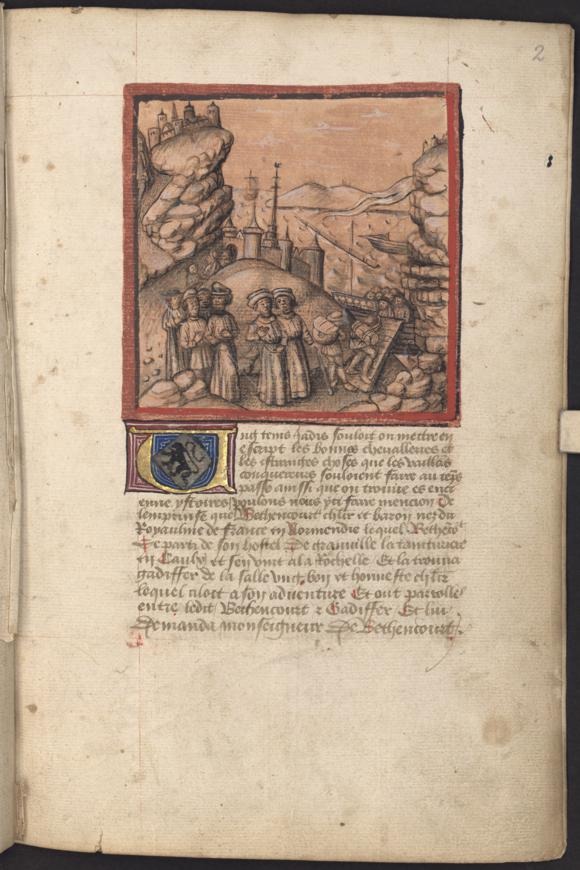 2
ung temps jadis souloit on mettre en
escript les bonnes chevalleries et
les estranges choses que les vaillãs
conquereurs souloient faire au tẽps
passe ainssi que on trouue es enci
enne ystoires voulons nous ycy faire mencion de
lemprinse que Bethencourt chlr et baron nez du
Royaulme de france en Normendie lequel Bethẽcot
Se parti de son hostel De grainville la tainturiere
en Caulx et sen vint ala Rochelle Et la trouua
gadiffer de la salle ung bon et honneste chlr
lequel aloit a son aduenture Et out parrolle
entre ledit Bethencourt z Gadiffer Et lui
Demanda monseigneur De Bethencourt